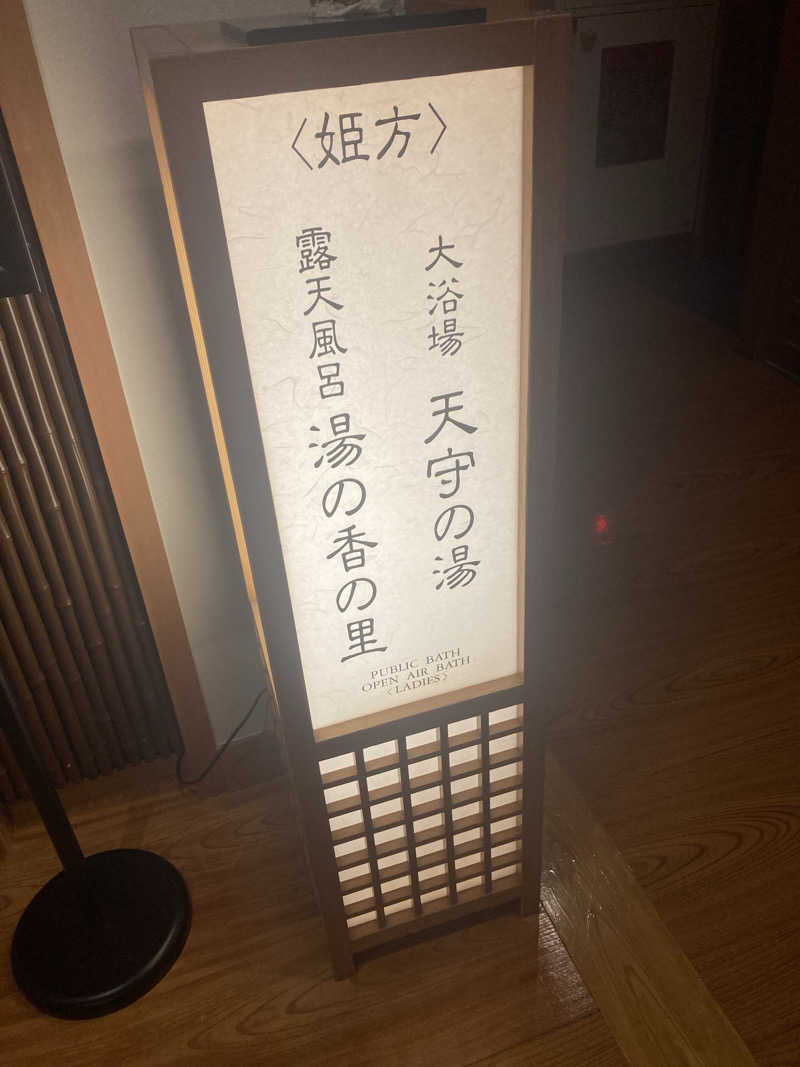 〈姫方〉
大浴場 天守の湯
露天風呂 湯の香の里
PUBLIC BATH
OPEN AIR BATH
〈LADIES〉